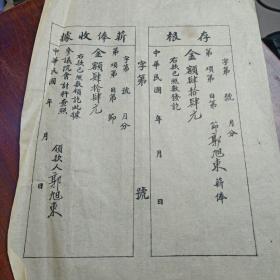 存根
字第 號 月分
第 項第 目第 節郭旭東薪俸
金額肆拾肆元
右款已照數發訖
中華民國 年 月 日
字第 號
薪俸收據
字第 號 月分
第 項第 目第 節
金額肆拾肆元
右款已照數領訖此據
參議院會計科查照
領款人郭旭東
中華民國 年 月 日